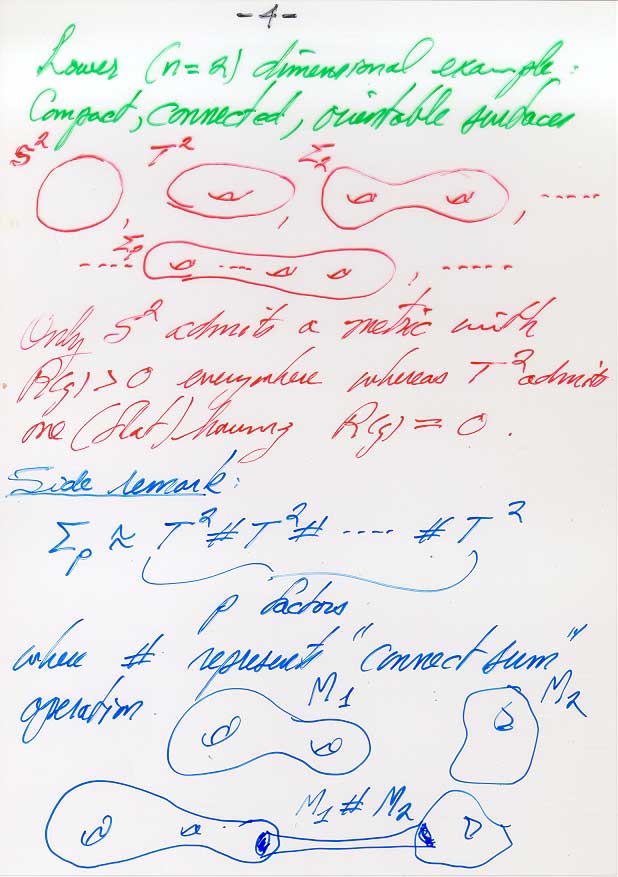 -4-
Lower (n=2) dimensional example:
Compact, connected, orientable surfaces
S² T² Σ₂
, , , -----
---- Σₚ ---- , -----
Only S² admits a metric with
R(g) > 0 everywhere whereas T² admits
one (flat) having R(g) = 0.
Side remark:
Σₚ ≈ T² # T² # ---- # T²
p factors
where # represents "connect sum"
operation. M₁ M₂
M₁ # M₂